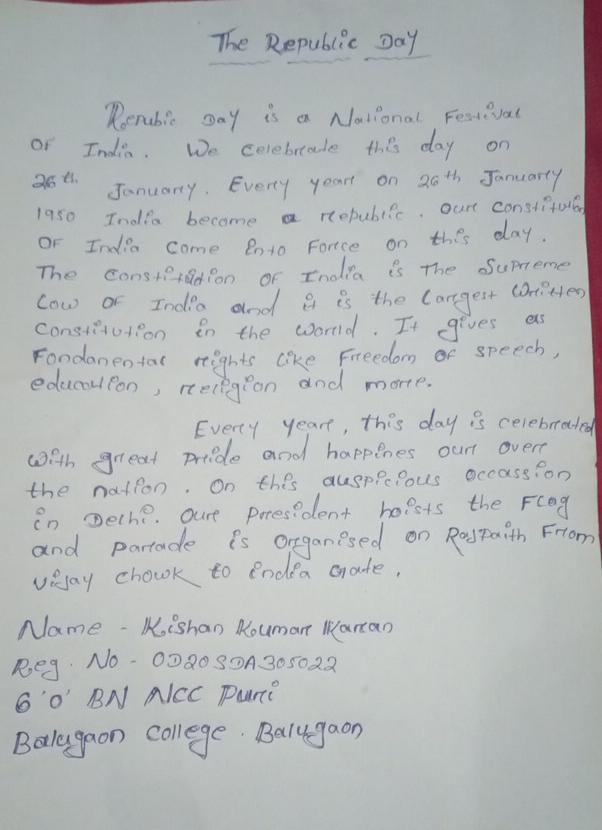 The Republic Day
Renubic Day is a National Festival
OF India. We celebreate this day on
26th January. Every year on 26th January
1950 India become a republic. our constitution
OF India come into Force on this day.
The constitution OF India is The Supreme
Low OF India and it is the largest written
Constitution in the world. It gives as
Fondanental rights like Freedom OF speech,
education, religion and more.
Every year, this day is celebrated
with great pride and happines our over
the nation. On this auspicious occassion
in Delhi. Our president hoists the Flag
and parade is organised on RajPaith From
vijay chowk to india Gate.
Name - Kishan Kumar Karan
Reg. No - OD20SDA305022
6 'O' BN NCC Puri
Balugaon College. Balugaon